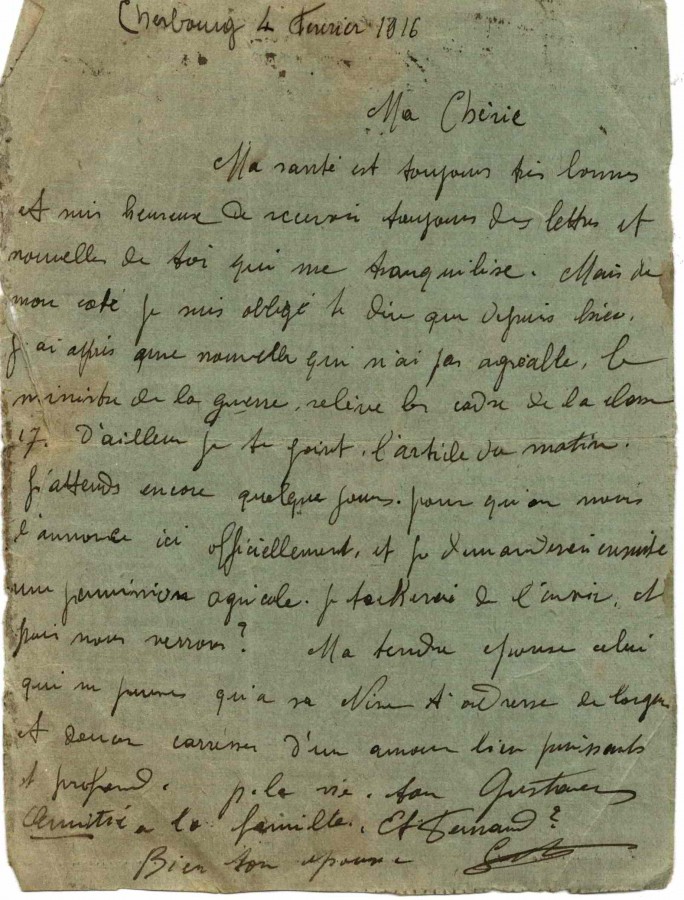 Cherbourg 4 Fevrier 1916
Ma Chérie
Ma santé est toujours très bonnes
et suis heureuse de recevoir toujours des lettres et
nouvelles de toi qui me tranquilise. Mais de
mon coté je suis obligé te dire que depuis hier,
j'ai appris une nouvelle qui n'ai pas agréable, le
ministre de la guerre, relève les cadre de la classe
17. D'ailleur je te joint, l'article du matin.
J'attends encore quelque jours. pour qu'on nous
l'annonce ici officiellement, et je demanderai ensuite
une permission agricole. je tacherai de l'avoir, et
puis nous verrons? Ma tendre epouse celui
qui ne penses qu'a sa Nine t'adresse de longues
et douces carresses d'un amour bien puissants
et profond. p. la vie. ton Gustave
Amitié a la famille. Et Fernand?
Bien ton epoux